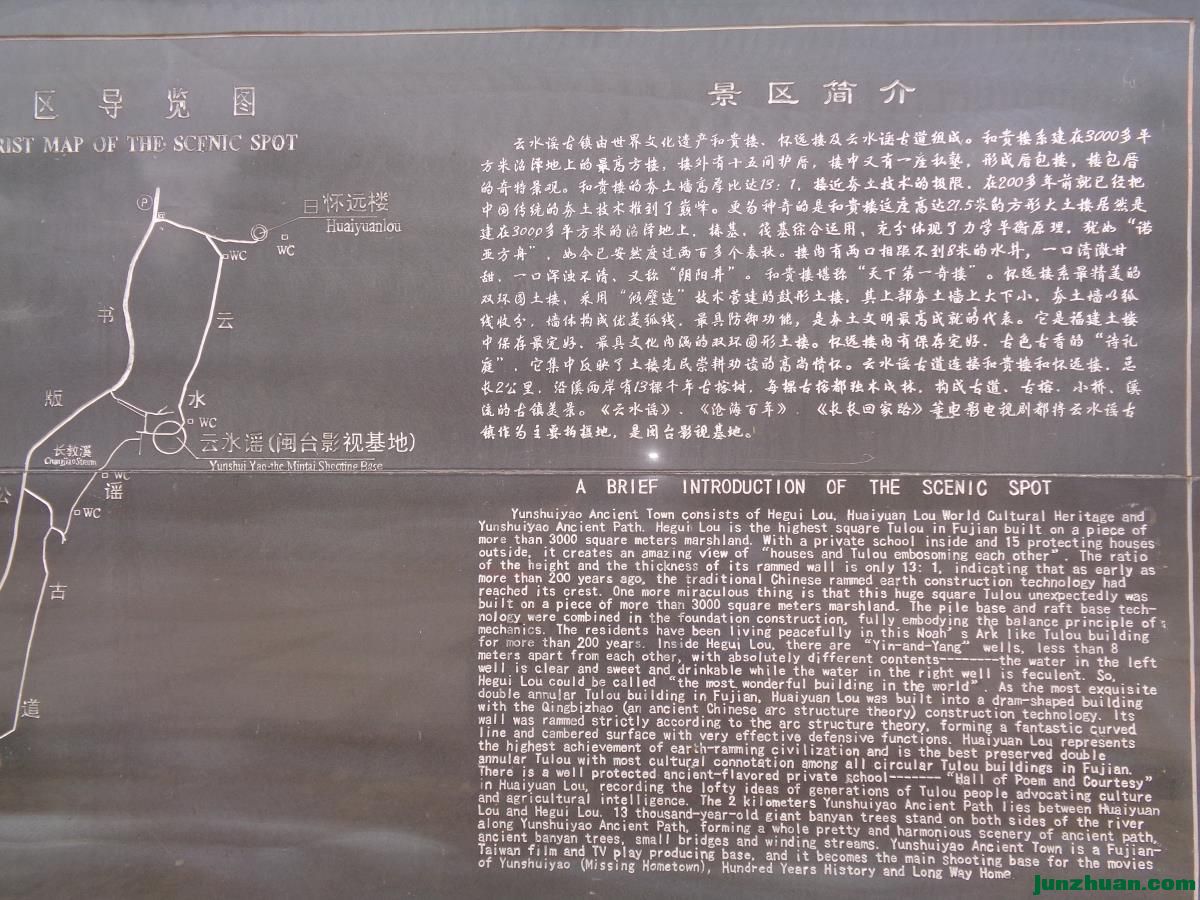 区导览图
RIST MAP OF THE SCENIC SPOT
P
怀远楼
Huaiyuanlou
WC
WC
书
云
版
水
WC
云水谣(闽台影视基地)
Yunshui Yao-the Mintai Shooting Base
长教溪
Changjiao Stream
WC
公
谣
WC
古
道
景区简介
云水谣古镇由世界文化遗产和贵楼、怀远楼及云水谣古道组成。和贵楼系建在3000多平
方米沼泽地上的最高方楼，楼外有十五间护厝，楼中又有一座私塾，形成厝包楼，楼包厝
的奇特景观。和贵楼的夯土墙高厚比达13：1，接近夯土技术的极限，在200多年前就已经把
中国传统的夯土技术推到了巅峰。更为神奇的是和贵楼这座高达21.5米的方形大土楼居然是
建在3000多平方米的沼泽地上，桩基、筏基综合运用，充分体现了力学平衡原理，犹如“诺
亚方舟”，如今已安然度过两百多个春秋。楼内有两口相距不到8米的水井，一口清澈甘
甜，一口浑浊不清，又称“阴阳井”。和贵楼堪称“天下第一奇楼”。怀远楼系最精美的
双环圆土楼，采用“倾壁造”技术营建的鼓形土楼，其上部夯土墙上大下小，夯土墙以弧
线收分，墙体构成优美弧线，最具防御功能，是夯土文明最高成就的代表。它是福建土楼
中保存最完好，最具文化内涵的双环圆形土楼。怀远楼内有保存完好，古色古香的“诗礼
庭”，它集中反映了土楼先民崇耕劝读的高尚情怀。云水谣古道连接和贵楼和怀远楼，总
长2公里，沿溪两岸有13棵千年古榕树，每棵古榕都独木成林，构成古道、古榕、小桥、溪
流的古镇美景。《云水谣》、《沧海百年》、《长长回家路》等电影电视剧都将云水谣古
镇作为主要拍摄地，是闽台影视基地。
A BRIEF INTRODUCTION OF THE SCENIC SPOT
Yunshuiyao Ancient Town consists of Hegui Lou, Huaiyuan Lou World Cultural Heritage and
Yunshuiyao Ancient Path. Hegui Lou is the highest square Tulou in Fujian built on a piece of
more than 3000 square meters marshland. With a private school inside and 15 protecting houses
outside, it creates an amazing view of “houses and Tulou embosoming each other”. The ratio
of the height and the thickness of its rammed wall is only 13: 1, indicating that as early as
more than 200 years ago, the traditional Chinese rammed earth construction technology had
reached its crest. One more miraculous thing is that this huge square Tulou unexpectedly was
built on a piece of more than 3000 square meters marshland. The pile base and raft base tech-
nology were combined in the foundation construction, fully embodying the balance principle of
mechanics. The residents have been living peacefully in this Noah's Ark like Tulou building
for more than 200 years. Inside Hegui Lou, there are “Yin-and-Yang” wells, less than 8
meters apart from each other, with absolutely different contents--------the water in the left
well is clear and sweet and drinkable while the water in the right well is feculent. So,
Hegui Lou could be called “the most wonderful building in the world”. As the most exquisite
double annular Tulou building in Fujian, Huaiyuan Lou was built into a dram-shaped building
with the Qingbizhao (an ancient Chinese arc structure theory) construction technology. Its
wall was rammed strictly according to the arc structure theory, forming a fantastic curved
line and cambered surface with very effective defensive functions. Huaiyuan Lou represents
the highest achievement of earth-ramming civilization and is the best preserved double
annular Tulou with most cultural connotation among all circular Tulou buildings in Fujian.
There is a well protected ancient-flavored private school-------“Hall of Poem and Courtesy”
in Huaiyuan Lou, recording the lofty ideas of generations of Tulou people advocating culture
and agricultural intelligence. The 2 kilometers Yunshuiyao Ancient Path lies between Huaiyuan
Lou and Hegui Lou. 13 thousand-year-old giant banyan trees stand on both sides of the river
along Yunshuiyao Ancient Path, forming a whole pretty and harmonious scenery of ancient path,
ancient banyan trees, small bridges and winding streams. Yunshuiyao Ancient Town is a Fujian-
Taiwan film and TV play producing base, and it becomes the main shooting base for the movies
of Yunshuiyao (Missing Hometown), Hundred Years History and Long Way Home.
junzhuan.com